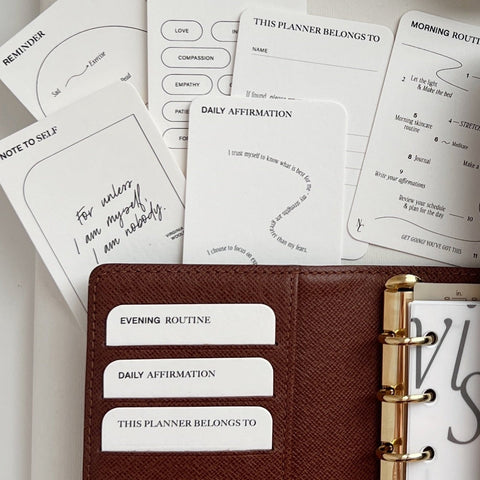 REMINDER
Exercise
Sad
LOVE
COMPASSION
EMPATHY
PATIENCE
FAMILY
THIS PLANNER BELONGS TO
NAME
If found, please
MORNING ROUTI
1
2
Let the light
& Make the bed
4 — STRETCH
5
Morning skincare
routine
6
Meditate
8 Journal
9
Write your affirmations
Make a
Review your schedule
& plan for the day
10
GET GOING! YOU'VE GOT THIS
11
NOTE TO SELF
For unless
I am myself,
I am nobody.
VIRGINIA
WOOLF
DAILY AFFIRMATION
I trust myself to know what is best for me
my strengths are greater than my fears.
I choose to focus on
EVENING ROUTINE
DAILY AFFIRMATION
THIS PLANNER BELONGS TO
in.
vis